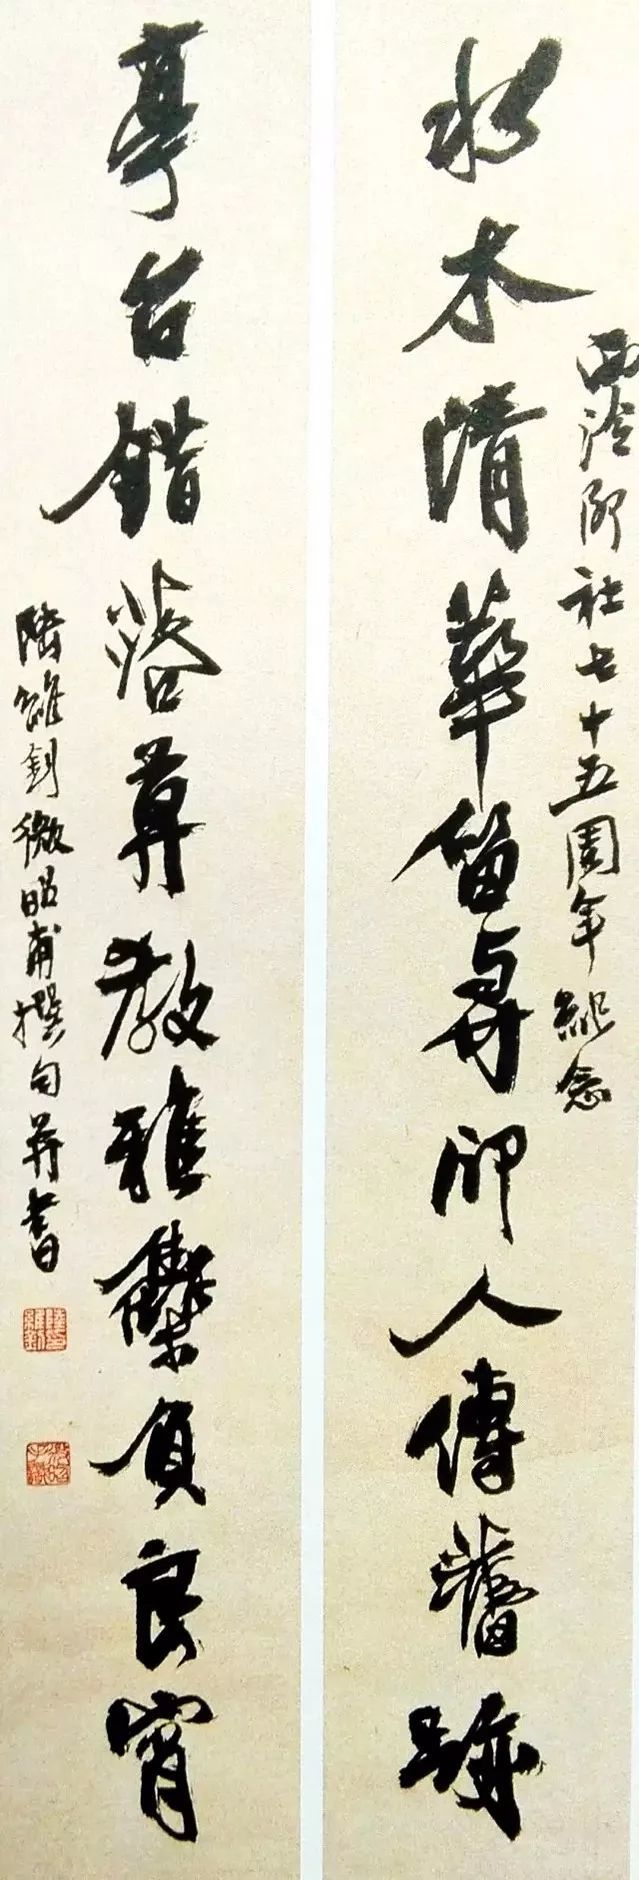 水木清華留與印人傳舊跡
西泠印社七十五周年紀念
亭台錯落莫教雅集負良宵
陸維釗微昭甫撰句并書